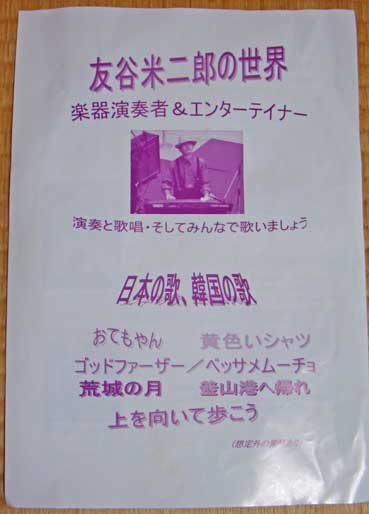 友谷米二郎の世界
楽器演奏者&エンターテイナー
演奏と歌唱・そしてみんなで歌いましょう
日本の歌、韓国の歌
おてもやん 黄色いシャツ
ゴッドファーザー/ベッサメムーチョ
荒城の月 釜山港へ帰れ
上を向いて歩こう
(想定外の